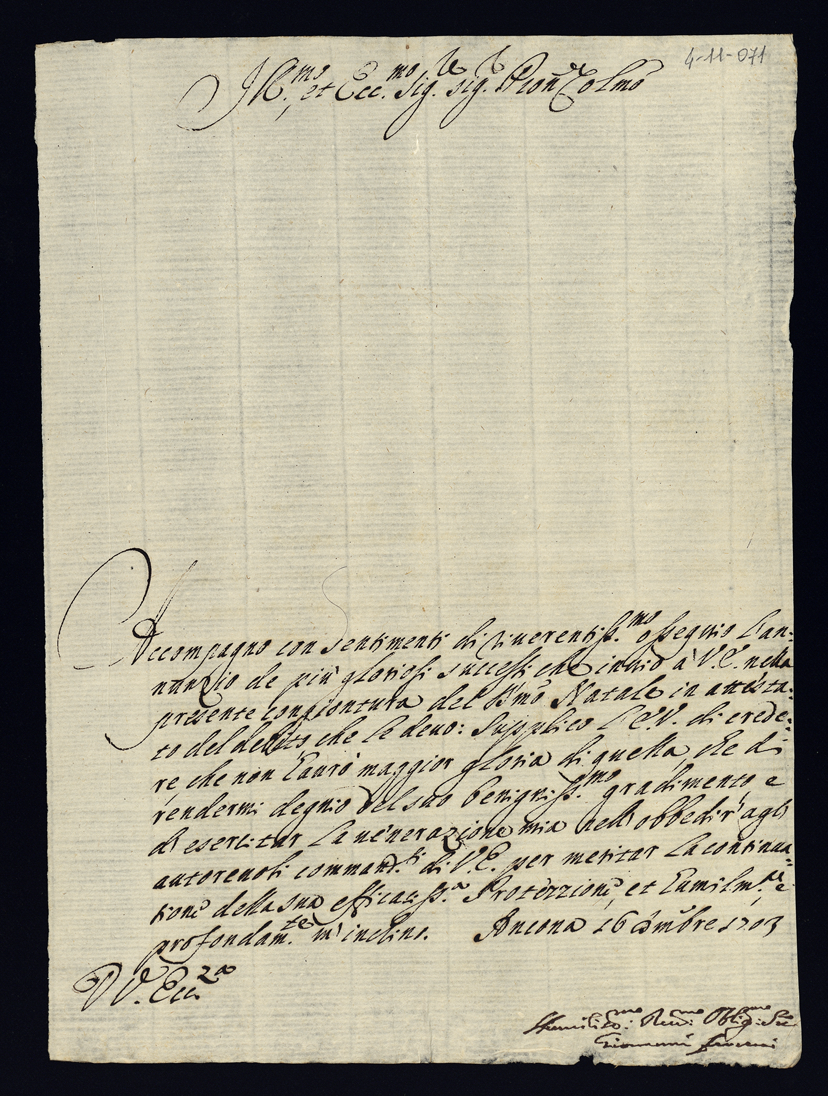 4-11-071
Ill.mo, et Ecc.mo Sig.re Sig.re Pron.e Colmo
Accompagno con sentimenti di riverentiss.mo ossequio l'an:
nunzio de più gloriosi successi che invio à V.E. nella
presente congiontura del S.mo Natale in attesta:
to del debito, che le devo: supplico l'E.V. di crede:
re, che non haurò maggior gloria di quella, che di
rendermi degnio del suo benigniss.mo gradimento, e
d'esercitar la venerazione mia nell'obbedir agli
autorevoli command.ti di V.E. per meritar la continua=
tione della sua efficaciss.a Protezzione, et humilm.te e
profondam.te m'inclino. Ancona 16 Xmbre 1703
D V. Ecc.za
Humiliss.mo Rev.mo Oblig.mo Se.
Giovanni